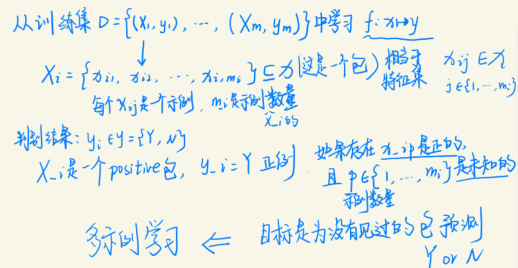 从训练集 D={(X₁, y₁), ..., (Xm, ym)}中学习 f: x↦y
↓
Xᵢ = {xᵢ₁, xᵢ₂, ..., xᵢ,mᵢ} ⊆ X (这是一个包) 相当于特征集 xᵢⱼ ∈ X j∈{1,...,mᵢ}
每个xᵢⱼ是一个示例, mᵢ是示例数量
X_i的
判别结果: yᵢ ∈ y={Y, N}
X_i是一个positive包, y_i=Y 正例 如果存在 x_ip是正的,
且 p∈{1,...,mᵢ}是未知的
示例数量
多示例学习 ⇐ 目标是为没有见过的包预测
Y or N